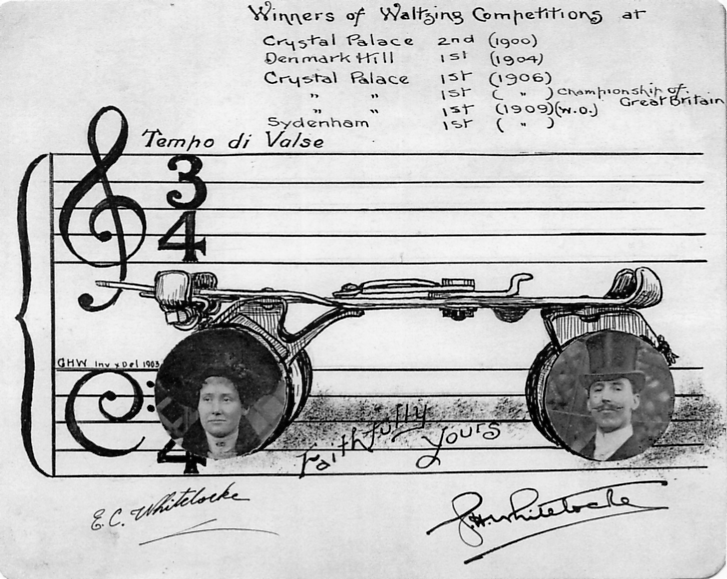 Winners of Waltzing Competitions at
Crystal Palace 2nd (1900)
Denmark Hill 1st (1904)
Crystal Palace 1st (1906)
" " 1st ( " ) Championship of Great Britain
" " 1st (1909) (W.O.)
Sydenham 1st ( " )
Tempo di Valse
3
4
GHW Inv & Del 1903
4
Faithfully Yours
E.C. Whitelocke
G.H. Whitelocke